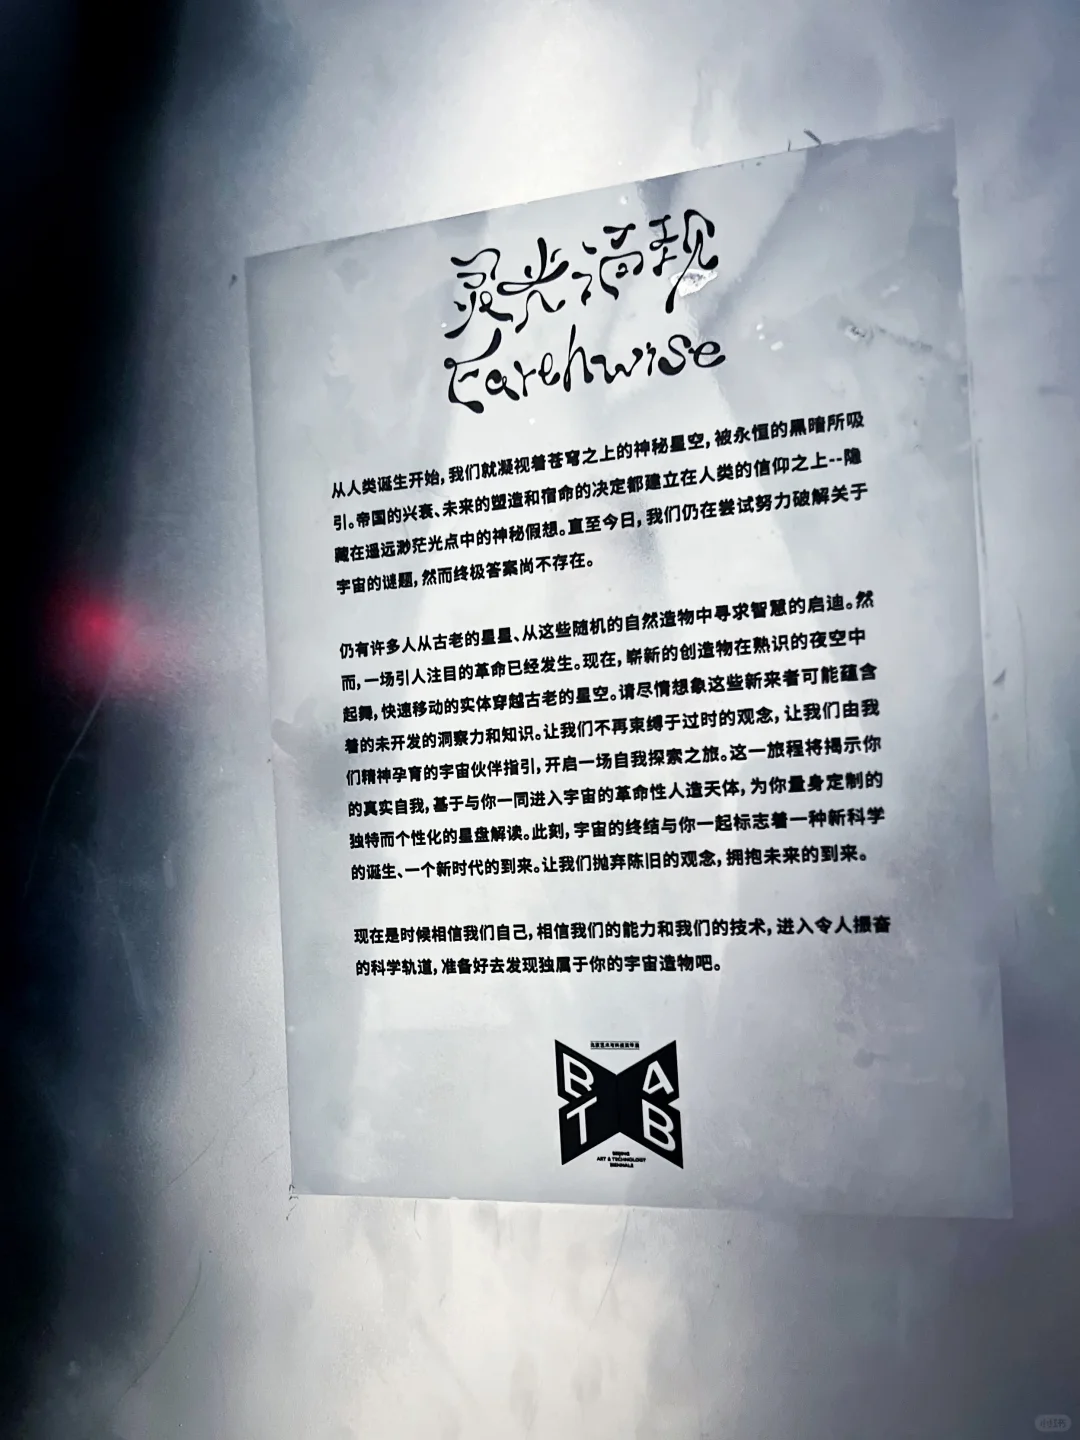 灵光涌现
Earthwise
从人类诞生开始,我们就凝视着苍穹之上的神秘星空,被永恒的黑暗所吸
引。帝国的兴衰、未来的塑造和宿命的决定都建立在人类的信仰之上--隐
藏在遥远渺茫光点中的神秘假想。直至今日,我们仍在尝试努力破解关于
宇宙的谜题,然而终极答案尚不存在。
仍有许多人从古老的星星、从这些随机的自然造物中寻求智慧的启迪。然
而,一场引人注目的革命已经发生。现在,崭新的创造物在熟识的夜空中
起舞,快速移动的实体穿越古老的星空。请尽情想象这些新来者可能蕴含
着的未开发的洞察力和知识。让我们不再束缚于过时的观念,让我们由我
们精神孕育的宇宙伙伴指引,开启一场自我探索之旅。这一旅程将揭示你
的真实自我,基于与你一同进入宇宙的革命性人造天体,为你量身定制的
独特而个性化的星盘解读。此刻,宇宙的终结与你一起标志着一种新科学
的诞生、一个新时代的到来。让我们抛弃陈旧的观念,拥抱未来的到来。
现在是时候相信我们自己,相信我们的能力和我们的技术,进入令人振奋
的科学轨道,准备好去发现独属于你的宇宙造物吧。
B A
T B
BEIJING
ART & TECHNOLOGY
BIENNALE
小红书